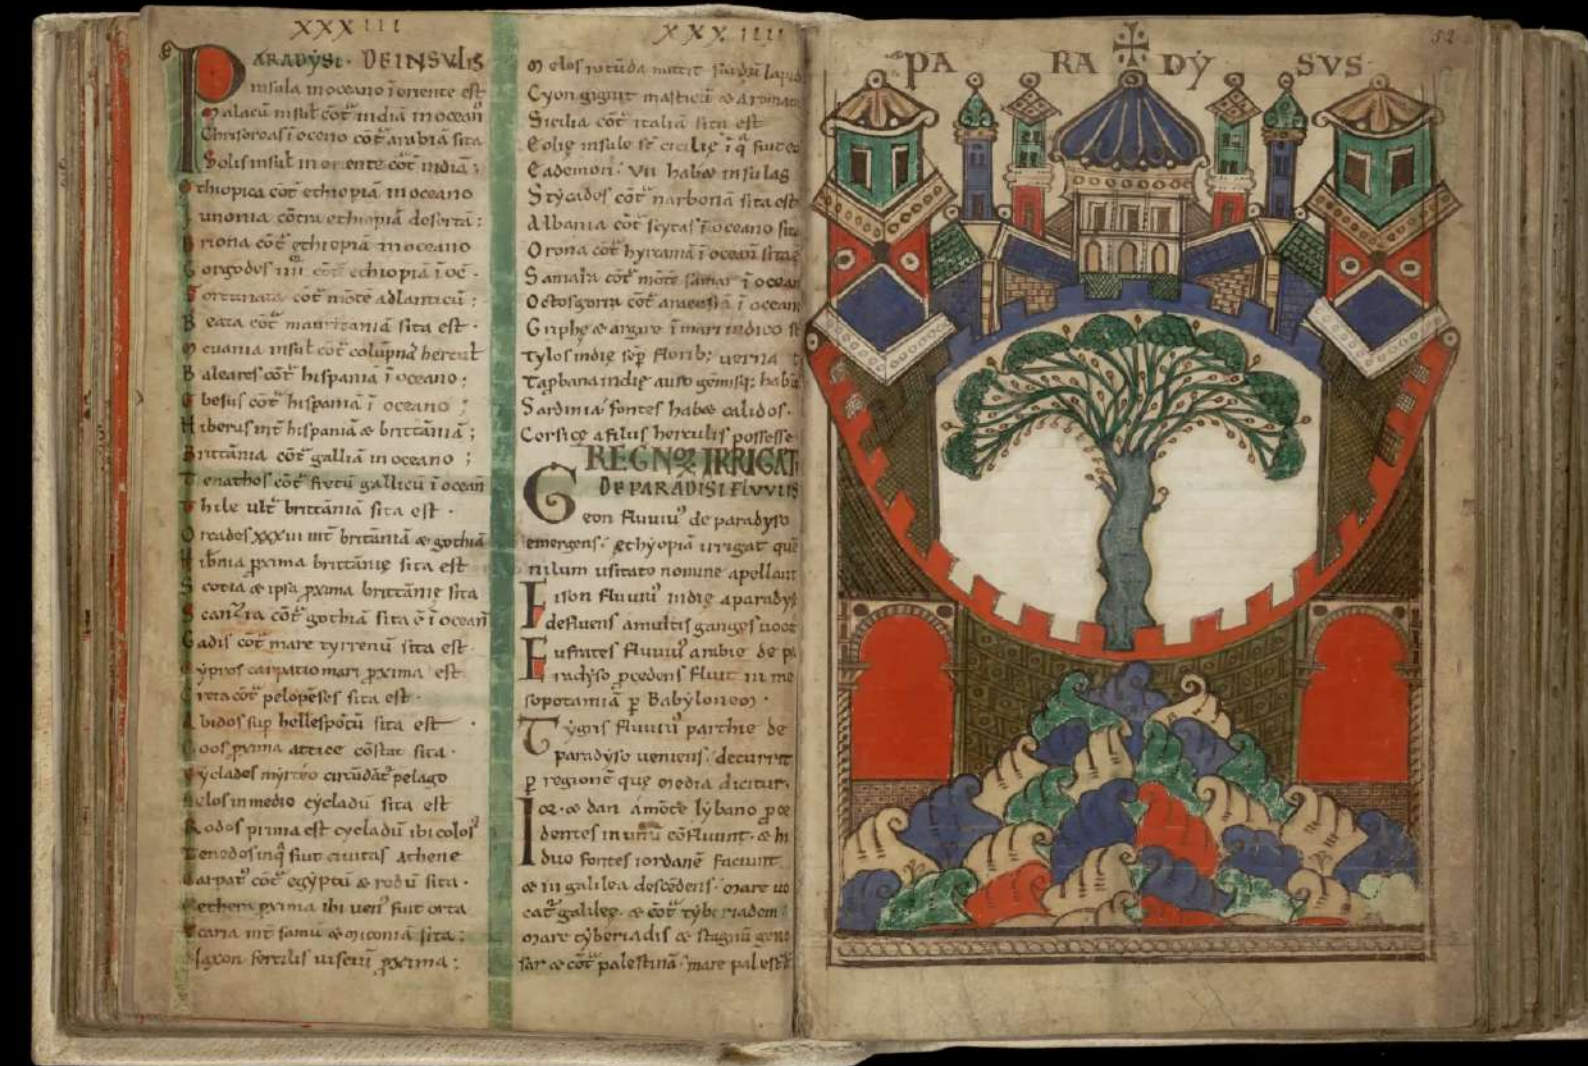 XXXIII
PARADYSI. DE INSULIS
insula in oceano ī oriente est
Malacū insul̄ cōt̄ indiā in ocean
Chrisoreas ī oceno cōt̄ arabiā sita
Solis insul̄ in oriente cōt̄ indiā;
Ethiopica cōt̄ ethiopiā in oceano
Iunonia cōtra ethiopiā desertā;
Briona cōt̄ ethiopiā in oceano
Gorgodes iiii cōt̄ ethiopiā ī oc̄.
Fortunata cōt̄ mōtē adlanticū;
Beata cōt̄ mauritaniā sita est.
Meuania insul̄ cōt̄ colūpnā hercul̄
Baleares cōt̄ hispaniā ī oceano;
Ebesus cōt̄ hispaniā ī oceano;
Hiberus int̄ hispaniā & brittāniā;
Brittānia cōt̄ galliā in oceano;
Tenathos cōt̄ fretū gallicū ī oceañ
Thile ult̄ brittāniā sita est.
Orcades xxxiii int̄ britāniā & gothiā
Hib̄nia p̄xima brittānię sita est
Scotia & ipsa p̄xima brittānię sita
Scanzia cōt̄ gothiā sita ē ī oceañ
Gadis cōt̄ mare tyrrenū sita est.
Cypros carpatio mari p̄xima est
Creta cōt̄ pelopēses sita est.
Abidos sup hellespōtū sita est
Coos p̄xima attice cōstat sita.
Cyclades myrteo circūdat̄ pelago
Delos in medio cycladū sita est
Rodos prima est cycladū ibi colos
Tenedos inq̄ fuit ciuitas Athene
Carpat' cōt̄ egyptū & rodū sita.
Cethera p̄xima ibi uen' fuit orta
Icaria int̄ samū & miconiā sita;
Naxon fertilis p̄xima;
XXXIIII
Melos rotūda mittit lapid
Cyon gignit masticū & aromata
Sicilia cōt̄ italiā sita est
Eolię insule sē cicilię ī q̄ fuit
Cademon; VII habet insulas
Stycados cōt̄ narbonā sita est
Albania cōt̄ scytas ī oceano sita
Orona cōt̄ hyrcaniā ī oceañ sita
Samara cōt̄ mōtē samar ī ocean
Octosgorra cōt̄ ī ocean
Griphę & argire ī mari indico
Tylos indię sēp florib; uerna
Taprbana indię auro gēmisq; hab
Sardinia fontes habet calidos.
Corsicę a filiis herculis possesse
REGNOꝜ IRRIGAT
DE PARADISI FLVVIIS
Geon fluuiu' de paradyso
emergens; ęthyopiā irrigat quē
nilum usitato nomine apellant
Fison fluuiu' indię a parady
defluens a multis ganges uoct
Eufrates fluuiu' arabie de pa
radyso p̄cedens fluit in me
sopotamiā p̄ Babyloneo.
Tygris fluuiu' parthie de
paradyso ueniens; decurrit
p̄ regionē quę media dicitur.
Ior. & dan a mōte lybano p̄ce
dentes in unū cōfluunt. & hi
duo fontes iordanē faciunt
& in galilea descēdens. mare uo
cat̄ galileę. & cōt̄ tyberiadem
mare tyberiadis & stagnū gene
sar & cōt̄ palestinā. mare palest
52
PA RA DY SVS